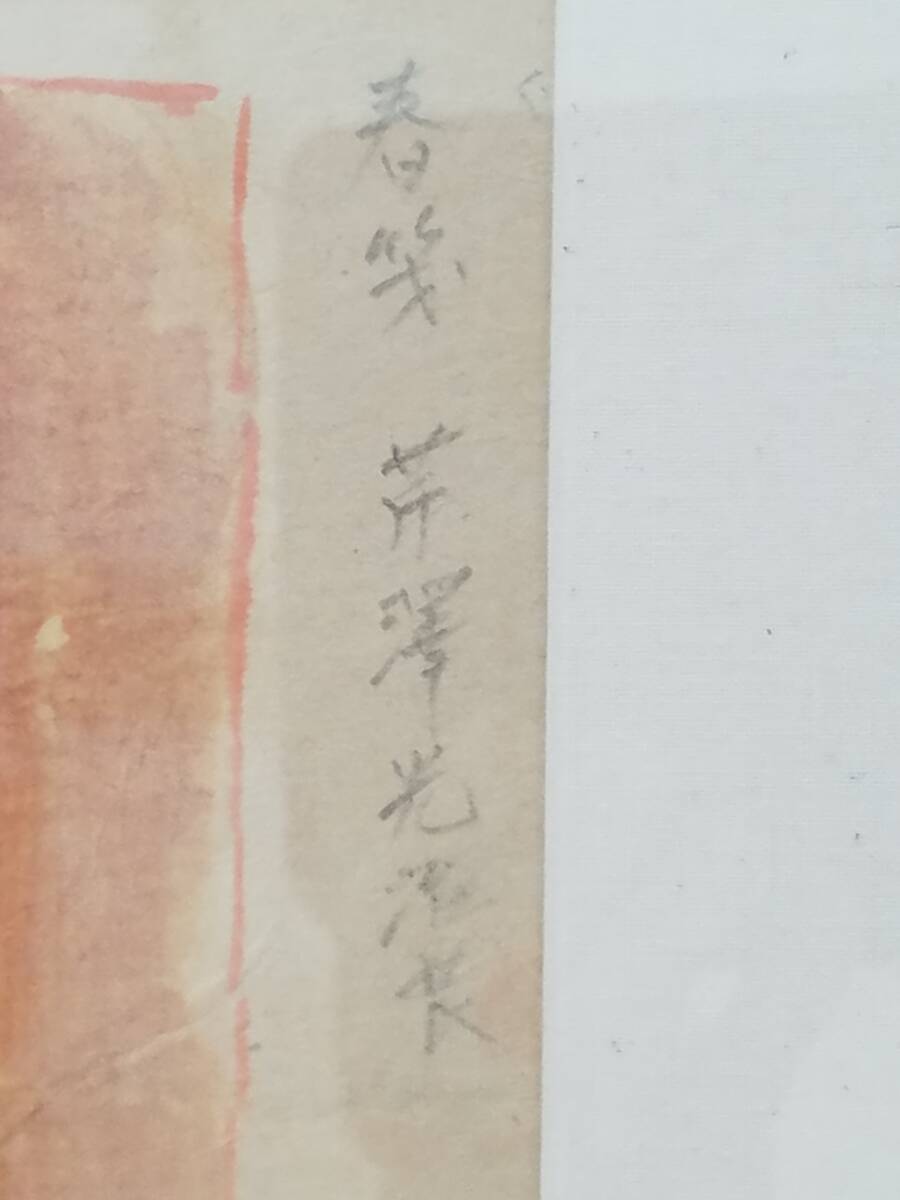 春箋 芹澤光治良